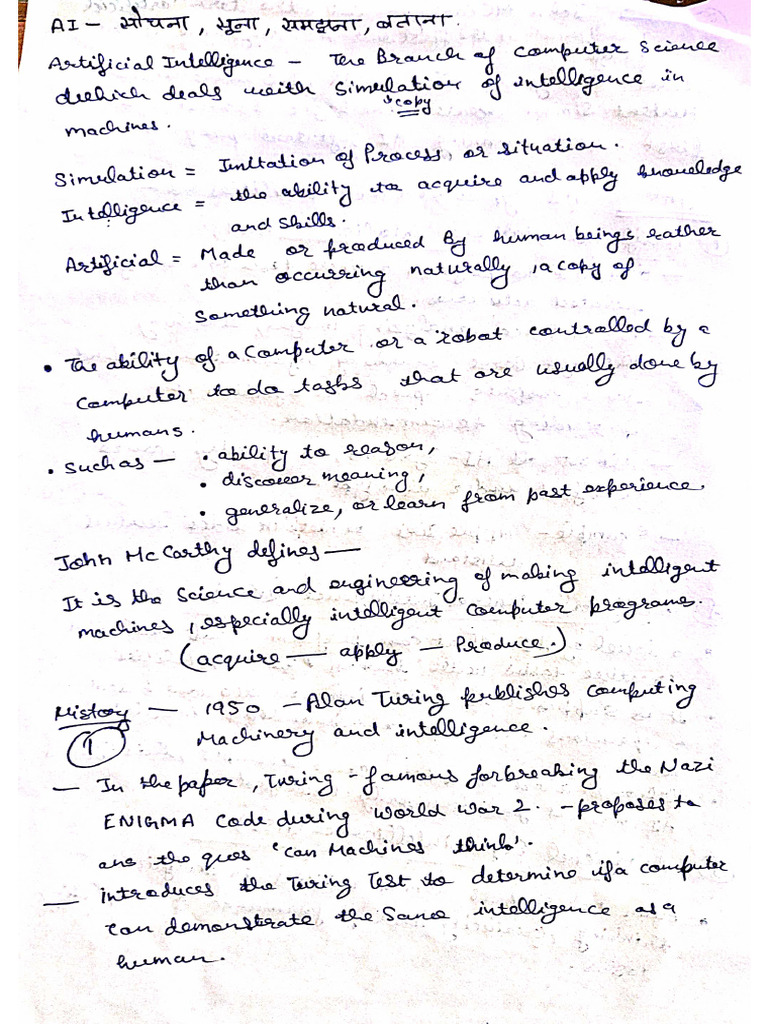 AI - सोचना, सूना, समझना, बताना.
Artificial Intelligence - The Branch of computer Science
which deals with Simulation of intelligence in
copy
machines.
Simulation = Imitation of Process, or situation.
Intelligence = the ability to acquire and apply knowledge
and skills.
Artificial = Made or produced By human beings rather
than occurring naturally, a copy of
Something natural.
• The ability of a computer or a robot controlled by a
computer to do tasks that are usually done by
humans.
• Such as — • ability to reason,
• discover meaning,
• generalize, or learn from past experience.
John McCarthy defines —
It is the Science and engineering of making intelligent
machines, especially intelligent computer programs.
(acquire — apply — Produce.)
History — 1950 - Alan Turing publishes computing
1 Machinery and intelligence.
— In the paper, Turing - famous for breaking the Nazi
ENIGMA Code during World War 2. - proposes to
ans the ques 'can Machines think'.
— introduces the Turing Test to determine if a computer
can demonstrate the Same intelligence as a
human.